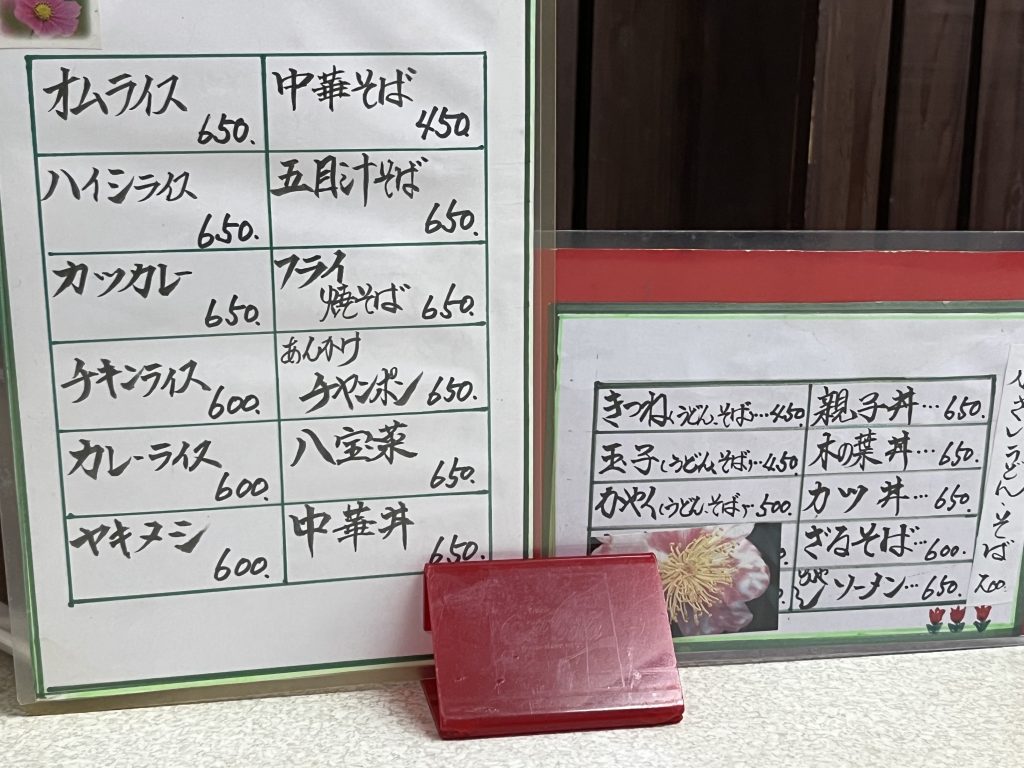 オムライス
650.
中華そば
450
ハイシライス
650.
五目汁そば
650.
カツカレー
650.
フライ
焼そば 650.
チキンライス
600.
あんかけ
チャンポン 650.
カレーライス
600.
八宝菜
650.
ヤキメシ
600.
中華丼
650.
きつね(うどん、そば)…450
親子丼…650.
玉子(うどん、そば)…450
木の葉丼…650.
かやく(うどん、そば)…500.
カツ丼…650.
ざるそば…600.
ソーメン…650.
うどん、そば